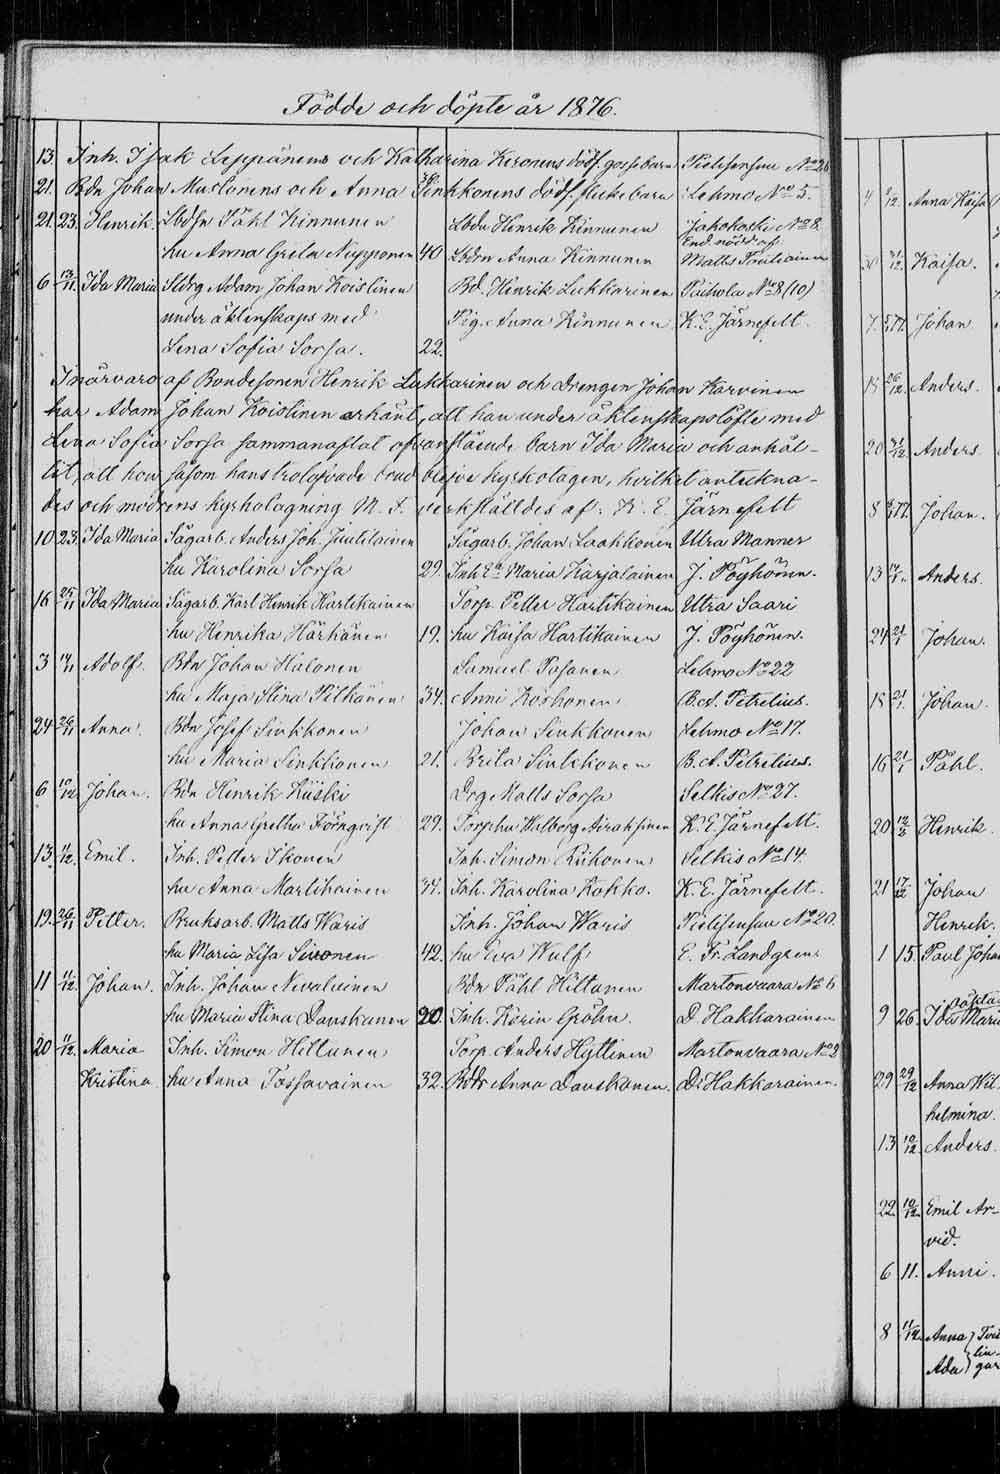 Födde och döpte år 1876.
13. Inh. Isak Leppänens och Katharina Keronens dödf. gossebarn Pielisensuu No 26
21. Bdn Johan Mustonens och Anna Sinkkonens 38 dödf. flickebarn Lehmo No 5.
21. 23. Henrik. Lbdsn Påhl Kinnunen Lbdn Henrik Kinnunen Jakokoski No 8.
hu Anna Greta Nupponen 40 Lbdrn Anna Kinnunen End. nöddöpt af Matts Poutiainen
6 13/11. Ida Maria Sldrg Adam Johan Koistinen Bd. Henrik Lukkarinen Paihola No 8 (10)
under äktenskaps med Pig. Anna Kinnunen K. E. Järnefelt.
Lena Sofia Sorsa. 22.
I närvaro af Bondesonen Henrik Lukkarinen och Drengen Johan Karvinen
har Adam Johan Koistinen erkänt, att han under äktenskapslöfte med
Lena Sofia Sorsa sammanaflat ofvanstående barn Ida Maria och anhål-
lit, att hon såsom hans trolofvade brud blefve kyrkotagen, hvilket anteckna-
des och modrens kyrkotagning M. F. verkställdes af: K. E. Järnefelt
10 23. Ida Maria Sågarb. Anders Joh. Juutilainen Sågarb. Johan Laakkonen Utra Manner
hu Karolina Sorsa 29. Inh Ea Maria Karjalainen J. Pöyhönen.
16 25/11 Ida Maria Sågarb. Karl Henrik Hartikainen Torp. Petter Hartikainen Utra Saari
hu Henrika Härkänen 19. hu Kaisa Hartikainen J. Pöyhönen.
3 19/11 Adolf. Bdn Johan Halonen Samuel Pasanen Lehmo No 22
hu Maja Stina Pitkänen 34. Anni Korhonen B. A. Petrelius.
24 26/11 Anna. Bdn Josef Sinkkonen Johan Sinkkonen Lehmo No 17.
hu Maria Sinkkonen 21. Brita Sinkkonen B. A. Petrelius.
6 10/12 Johan. Bdn Henrik Kiiski Drg Matts Sorsa Selkis No 27.
hu Anna Gretha Törnqvist 29. Torp hu Walborg Airaksinen K. E. Järnefelt.
13. 1/12. Emil. Inh. Petter Ikonen Inh. Simon Riikonen Selkis No 14.
hu Anna Martikainen 34. Inh. Karolina Kokko. K. E. Järnefelt.
19. 26/11 Petter. Bruksarb. Matts Waris Inh. Johan Waris Pielisensuu No 20.
hu Maria Lisa Sivonen 42. hu Eva Wulf E. Fr. Landgren
11 1/12. Johan. Inh. Johan Nevalainen Bdn Påhl Hiltunen Martonvaara No 6
hu Maria Stina Danskanen 20. Inh. Karin Gröhn. D. Hakkarainen
20 1/12. Maria Inh. Simon Hiltunen Torp. Anders Hyttinen Martonvaara No 2
Kristina hu Anna Tossavainen 32. Bdr Anna Danskanen. D. Hakkarainen.
4 1/12. Anna Kaisa
30 31/12. Kaisa.
7. Johan
15 26/12. Anders.
20 31/12. Anders.
8 Johan.
13 Anders.
24 21/1 Johan.
18 21/1. Johan.
16 21/1 Påhl.
20 Henrik.
21 17/12 Johan
Henrik.
1 15. Paul Johan
9 26. Ida Maria
29 29/12 Anna Wil-
helmina.
13 10/12. Anders.
22 10/12. Emil Ar-
vid.
6 11. Anni.
8 11/12. Anna } Tvil
lin-
Ada } gar